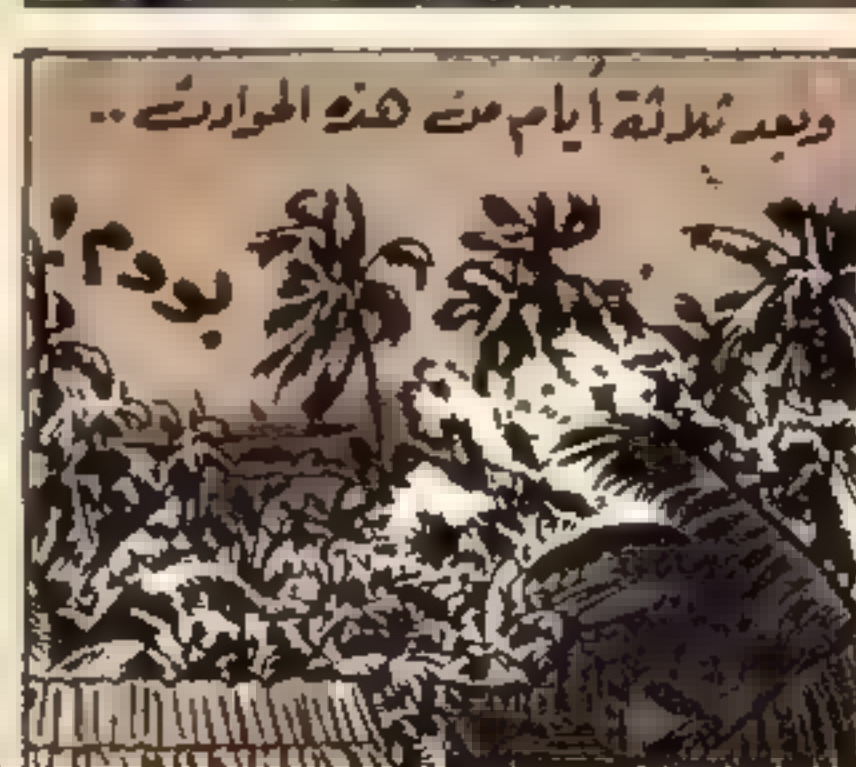 وبعد ثلاثة أيام من هذه الحوادث ..
بودم!